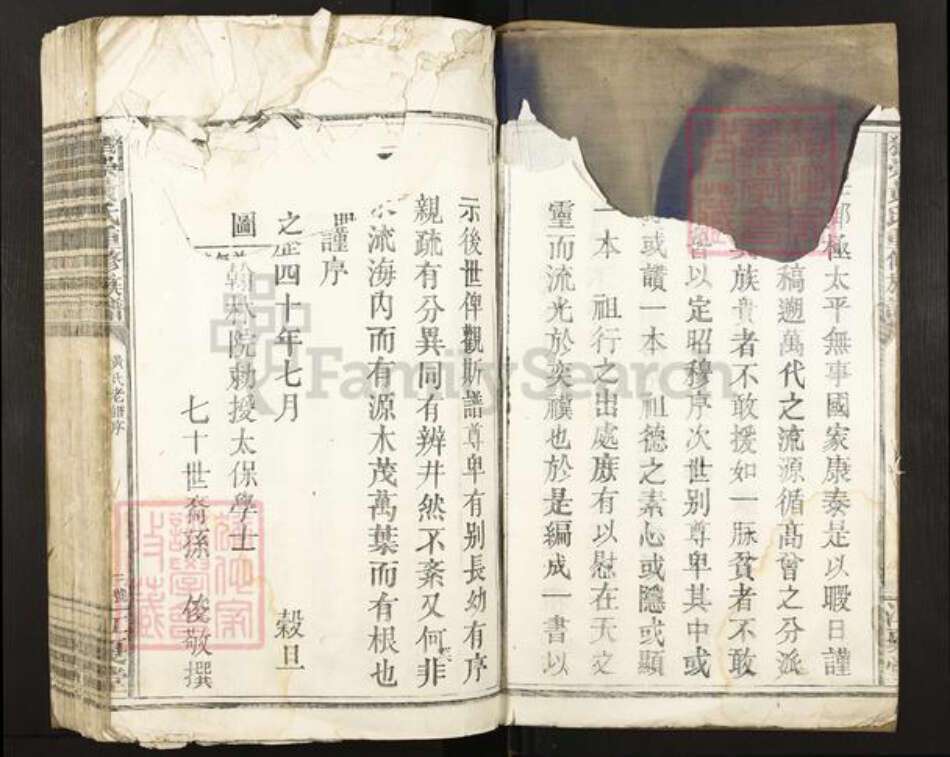 極太平無事國家康泰是以暇日謹
稿遡萬代之流源循高曾之分派
族貴者不敢援如一脉貧者不敢
以定昭穆序次世别尊卑其中或
或讚一本 祖德之素心或隱或顯
一本 祖行之出處庶有以慰在天之
靈而流光於奕禩也於是編成一書以
示後世俾觀斯譜尊卑有别長幼有序
親疏有分異同有辨井然不紊又何非
流海内而有源木茂萬葉而有根也
謹序
之 四十年七月 榖旦
圖 翰林院勅授太保學士
七十世裔孫 俊敬撰
黃氏老譜序
江夏堂
FamilySearch